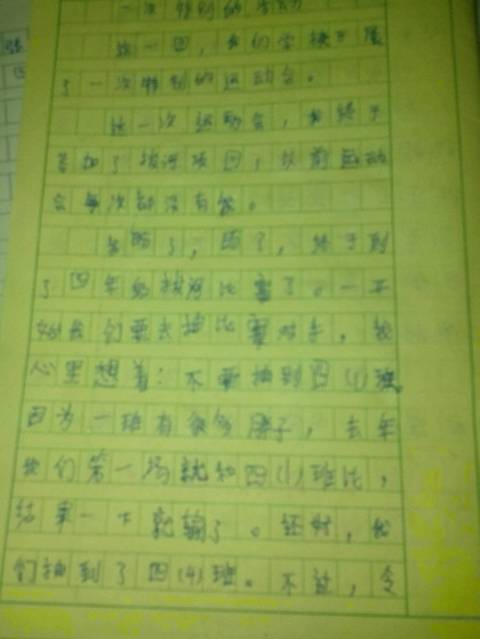 一次特别的运动
这一回，我们学校开展
了一次特别的运动会。
这一次运动会，我终于
参加了拔河项目，以前运动
会每次都没有我。
到了四年级拔河比赛了。一开
始我们要去抽比赛对手，我
心里想着：不要抽到四(1)班
因为一班有很多胖子，去年
我们第一场就和四(1)班比，
结果一下就输了。还好，我
们抽到了四(4)班。不过，令